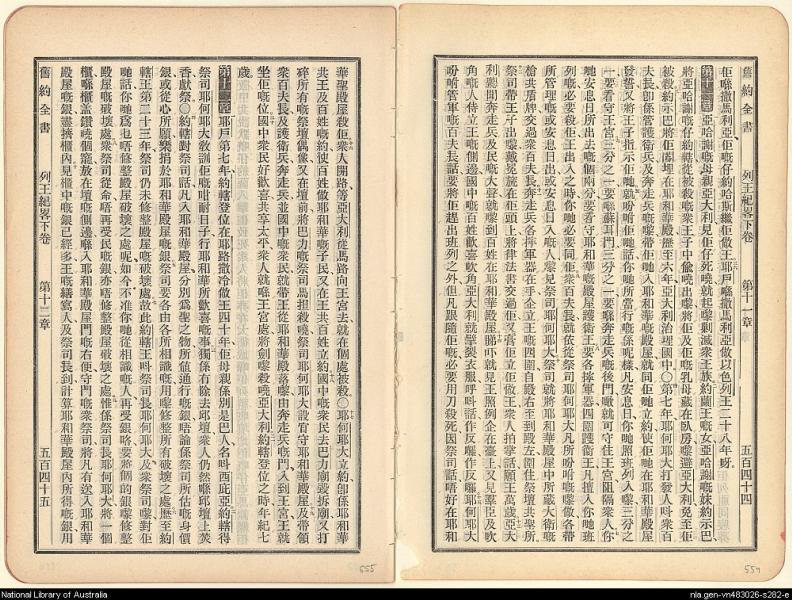 舊約全書 列王紀畧下卷 第十一章 五百四十四
佢喺撒馬利亞佢嘅仔約哈斯繼佢做王耶戶喺撒馬利亞做以色列王二十八年呀
第十一章 亞哈謝嘅母親亞大利見佢仔死曉就起嚟剿滅衆王族約蘭王嘅女亞哈謝嘅妹約示巴
將亞哈謝嘅仔約轄從被殺嘅衆王子中偷曉出嚟將佢及佢嘅乳母藏在臥房嚟避亞大利免至佢
被殺約示巴將佢關埋在耶和華殿歷至六年亞大利治理國中〇第七年耶何耶大打發人呌衆百
夫長卽係管護衛兵及奔走兵嘅嚟帶佢哋入耶和華殿屋就同佢哋立約使佢哋在耶和華殿屋
發誓又將王子指示佢哋就吩咐佢哋話你哋所當行嘅係呢樣凡安息日你哋照班列入嚟三分之
一要看守王宮三分之一要喺蘇耳門三分之一要喺奔走兵嘅後門噉就可守住王宮阻隔衆人你
哋安息日所出去嘅個兩分要看守耶和華殿屋護衛王要各揸軍器四圍護衛王凡擅入你哋班
列嘅必要殺佢王出入之時你哋必要同佢衆百夫長就依從祭司耶何耶大凡所吩咐嘅嚟做各帶
所管理嘅或安息日出或安息日入嘅人嚟見祭司耶何耶大祭司就將耶和華殿屋中所藏大衛嘅
槍共盾牌交過衆百夫長奔走兵各揸軍器在王子企立王嘅四圍自殿右至到殿左圍住祭壇共聖所
祭司帶王子出嚟戴冕旒在佢頭上將律法書交過佢又膏佢立佢做王衆人拍掌話願王萬歲亞大
利聽聞奔走兵及民嘅大聲就嚟到百姓在耶和華殿屋睇吓就見王照例企在臺上又見羣臣及吹
角嘅人侍立王嘅側邊國中嘅百姓歡喜吹角亞大利就擘裂衣服呼呌話作反囉作反囉耶何耶大
吩咐管軍嘅百夫長話要將佢趕出班列之外但凡跟隨佢嘅必要用刀殺死因祭司話唔好在耶和
華聖殿屋殺佢衆人開路等亞大利從馬路向王宮去就在個處被殺〇耶何耶大立約卽係耶和華
共王及百姓嘅約使百姓做耶和華嘅子民又在王共百姓立約國中嘅衆民去巴力廟毀拆廟又打
碎所有嘅祭壇偶像又在壇前將巴力嘅祭司馬坦殺曉祭司耶何耶大設官守耶和華殿屋及帶領
衆百夫長及護衛兵奔走兵並國中嘅衆民就帶王從耶和華殿落嚟由奔走兵嘅門入到王宮王就
坐佢嘅位國中衆民好歡喜共享太平衆人就喺王宮處將劍嚟殺曉亞大利約轄登位之時年紀七
歲
第十二章 耶戶第七年約轄登位在耶路撒冷做王四十年佢母親係別是巴人名呌西庇亞約轄得
祭司耶何耶大教訓佢嘅咁耐日子行耶和華所歡喜嘅事獨係冇除去邱壇衆人仍然喺邱壇上焚
香獻祭〇約轄對祭司話凡入耶和華殿屋分別為聖之物所值通行嘅銀唔論係祭司所估嘅身價
銀或從心所願樂捐於耶和華殿屋嘅銀祭司要各由各所相識嘅用嚟修整所有破壞之處歷至約
轄王第二十三年祭司仍未修整殿屋嘅破壞處故此約轄王呌祭司長耶何耶大及衆祭司嚟對佢
哋話你哋爲乜唔修整殿屋破壞之處呢如今不准你哋從相識嘅人再受銀咯要將個的銀嚟修整
殿屋嘅破壞處衆祭司從命唔再受民嘅銀亦唔修整殿屋破壞之處惟係祭司長耶何耶大將一個
櫃喺櫃蓋鑽曉個窿放在壇嘅側邊喺入耶和華殿屋門嘅右便守門嘅衆祭司將凡有送入耶和華
殿屋嘅銀盡擠櫃內見櫃中嘅銀已經多王嘅繕寫人及祭司長到計算耶和華殿屋內所得嘅銀用
舊約全書 列王紀畧下卷 第十二章 五百四十五
555
554
National Library of Australia
nla.gen-vn483026-s282-e